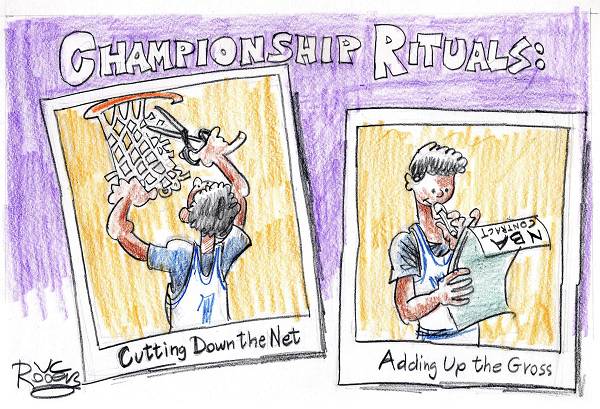 CHAMPIONSHIP RITUALS:
Cutting Down the Net
NBA
CONTRACT
Adding Up the Gross
VC
ROGERS